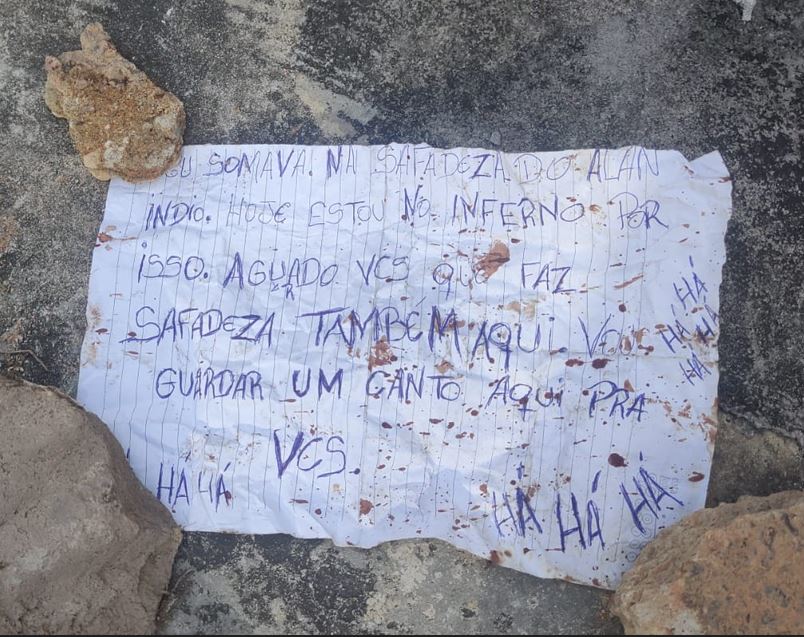 EU SOMAVA. NA SAFADEZA. DO ALAN
ÍNDIO. HOJE ESTOU NO INFERNO POR
ISSO. AGUADO VCS QUE FAZ
R
SAFADEZA TAMBÉM AQUI. VOU
GUARDAR UM CANTO AQUI PRA
VCS.
HÁ HÁ
HÁ HÁ
HÁ HÁ
HA HÁ
HÁ HÁ HÁ